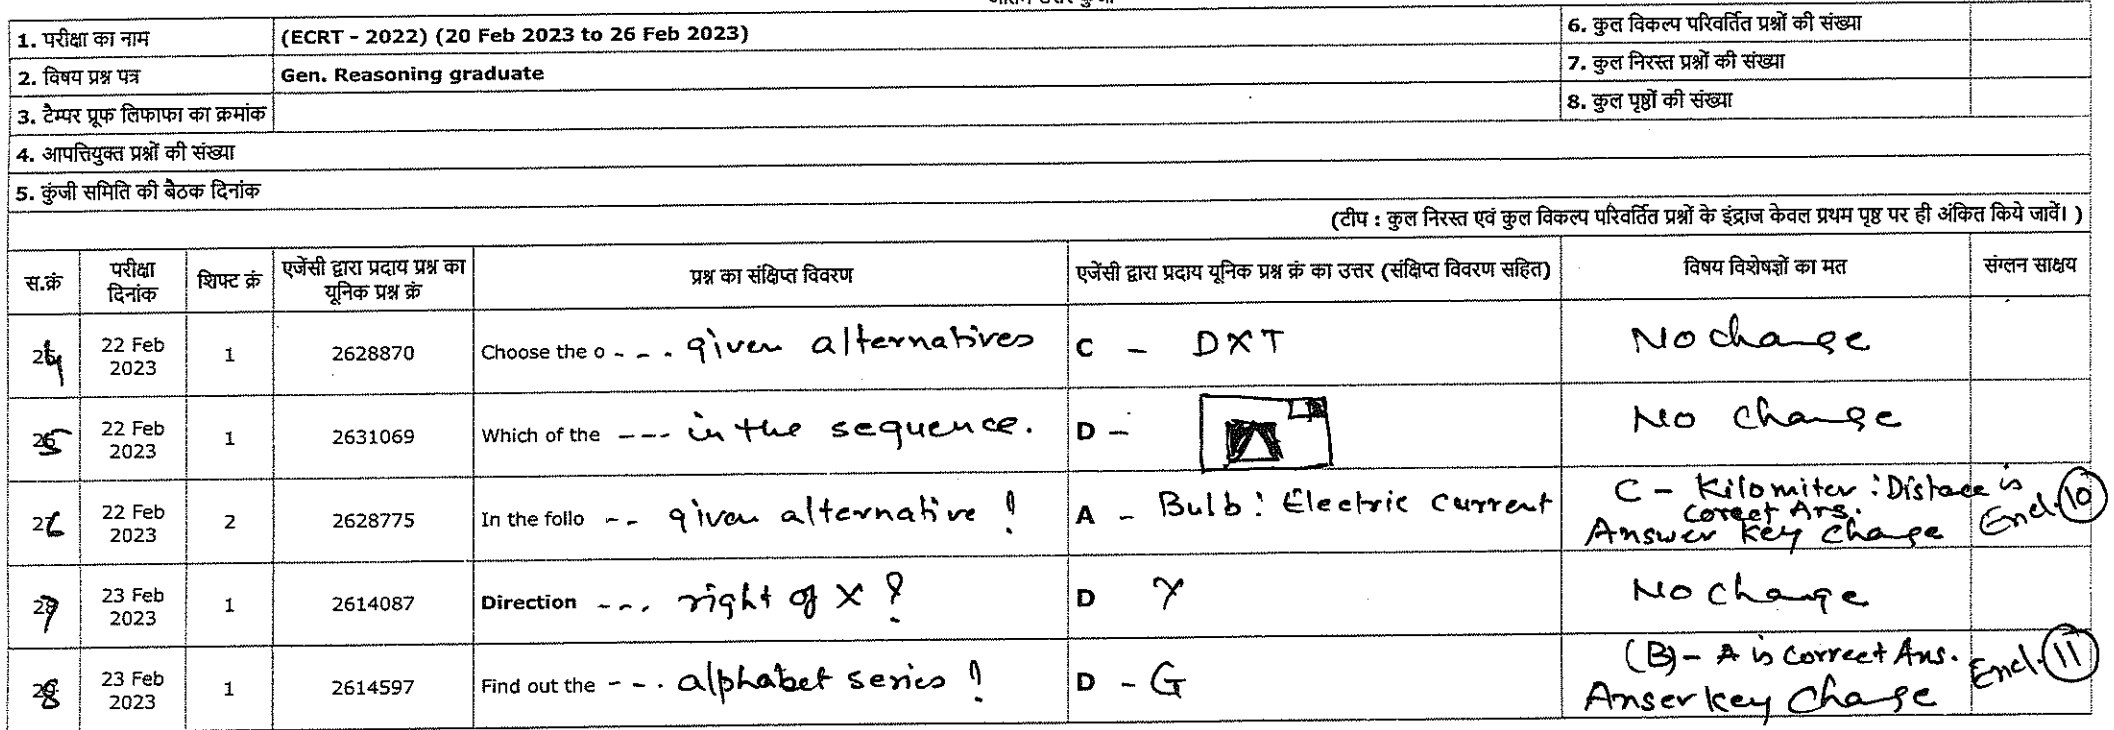 1. परीक्षा का नाम (ECRT - 2022) (20 Feb 2023 to 26 Feb 2023) 6. कुल विकल्प परिवर्तित प्रश्नों की संख्या
2. विषय प्रश्न पत्र Gen. Reasoning graduate 7. कुल निरस्त प्रश्नों की संख्या
3. टैम्पर प्रूफ लिफाफा का क्रमांक 8. कुल पृष्ठों की संख्या
4. आपत्तियुक्त प्रश्नों की संख्या
5. कुंजी समिति की बैठक दिनांक
(टीप : कुल निरस्त एवं कुल विकल्प परिवर्तित प्रश्नों के इंद्राज केवल प्रथम पृष्ठ पर ही अंकित किये जावें। )
स.क्रं परीक्षा दिनांक शिफ्ट क्रं एजेंसी द्वारा प्रदाय प्रश्न का यूनिक प्रश्न क्रं प्रश्न का संक्षिप्त विवरण एजेंसी द्वारा प्रदाय यूनिक प्रश्न क्रं का उत्तर (संक्षिप्त विवरण सहित) विषय विशेषज्ञों का मत संग्लन साक्षय
24 22 Feb 2023 1 2628870 Choose the o - - . given alternatives C - DXT No change
25 22 Feb 2023 1 2631069 Which of the --- in the sequence. D - No change
26 22 Feb 2023 2 2628775 In the follo -- given alternative ? A - Bulb : Electric current C - Kilomiter : Distace is
corect Ans.
Answer key change Encl. 10
27 23 Feb 2023 1 2614087 Direction --. right of X ? D Y No change
28 23 Feb 2023 1 2614597 Find out the --. alphabet series ? D - G (B) - A is correct Ans.
Anser key change Encl. 11